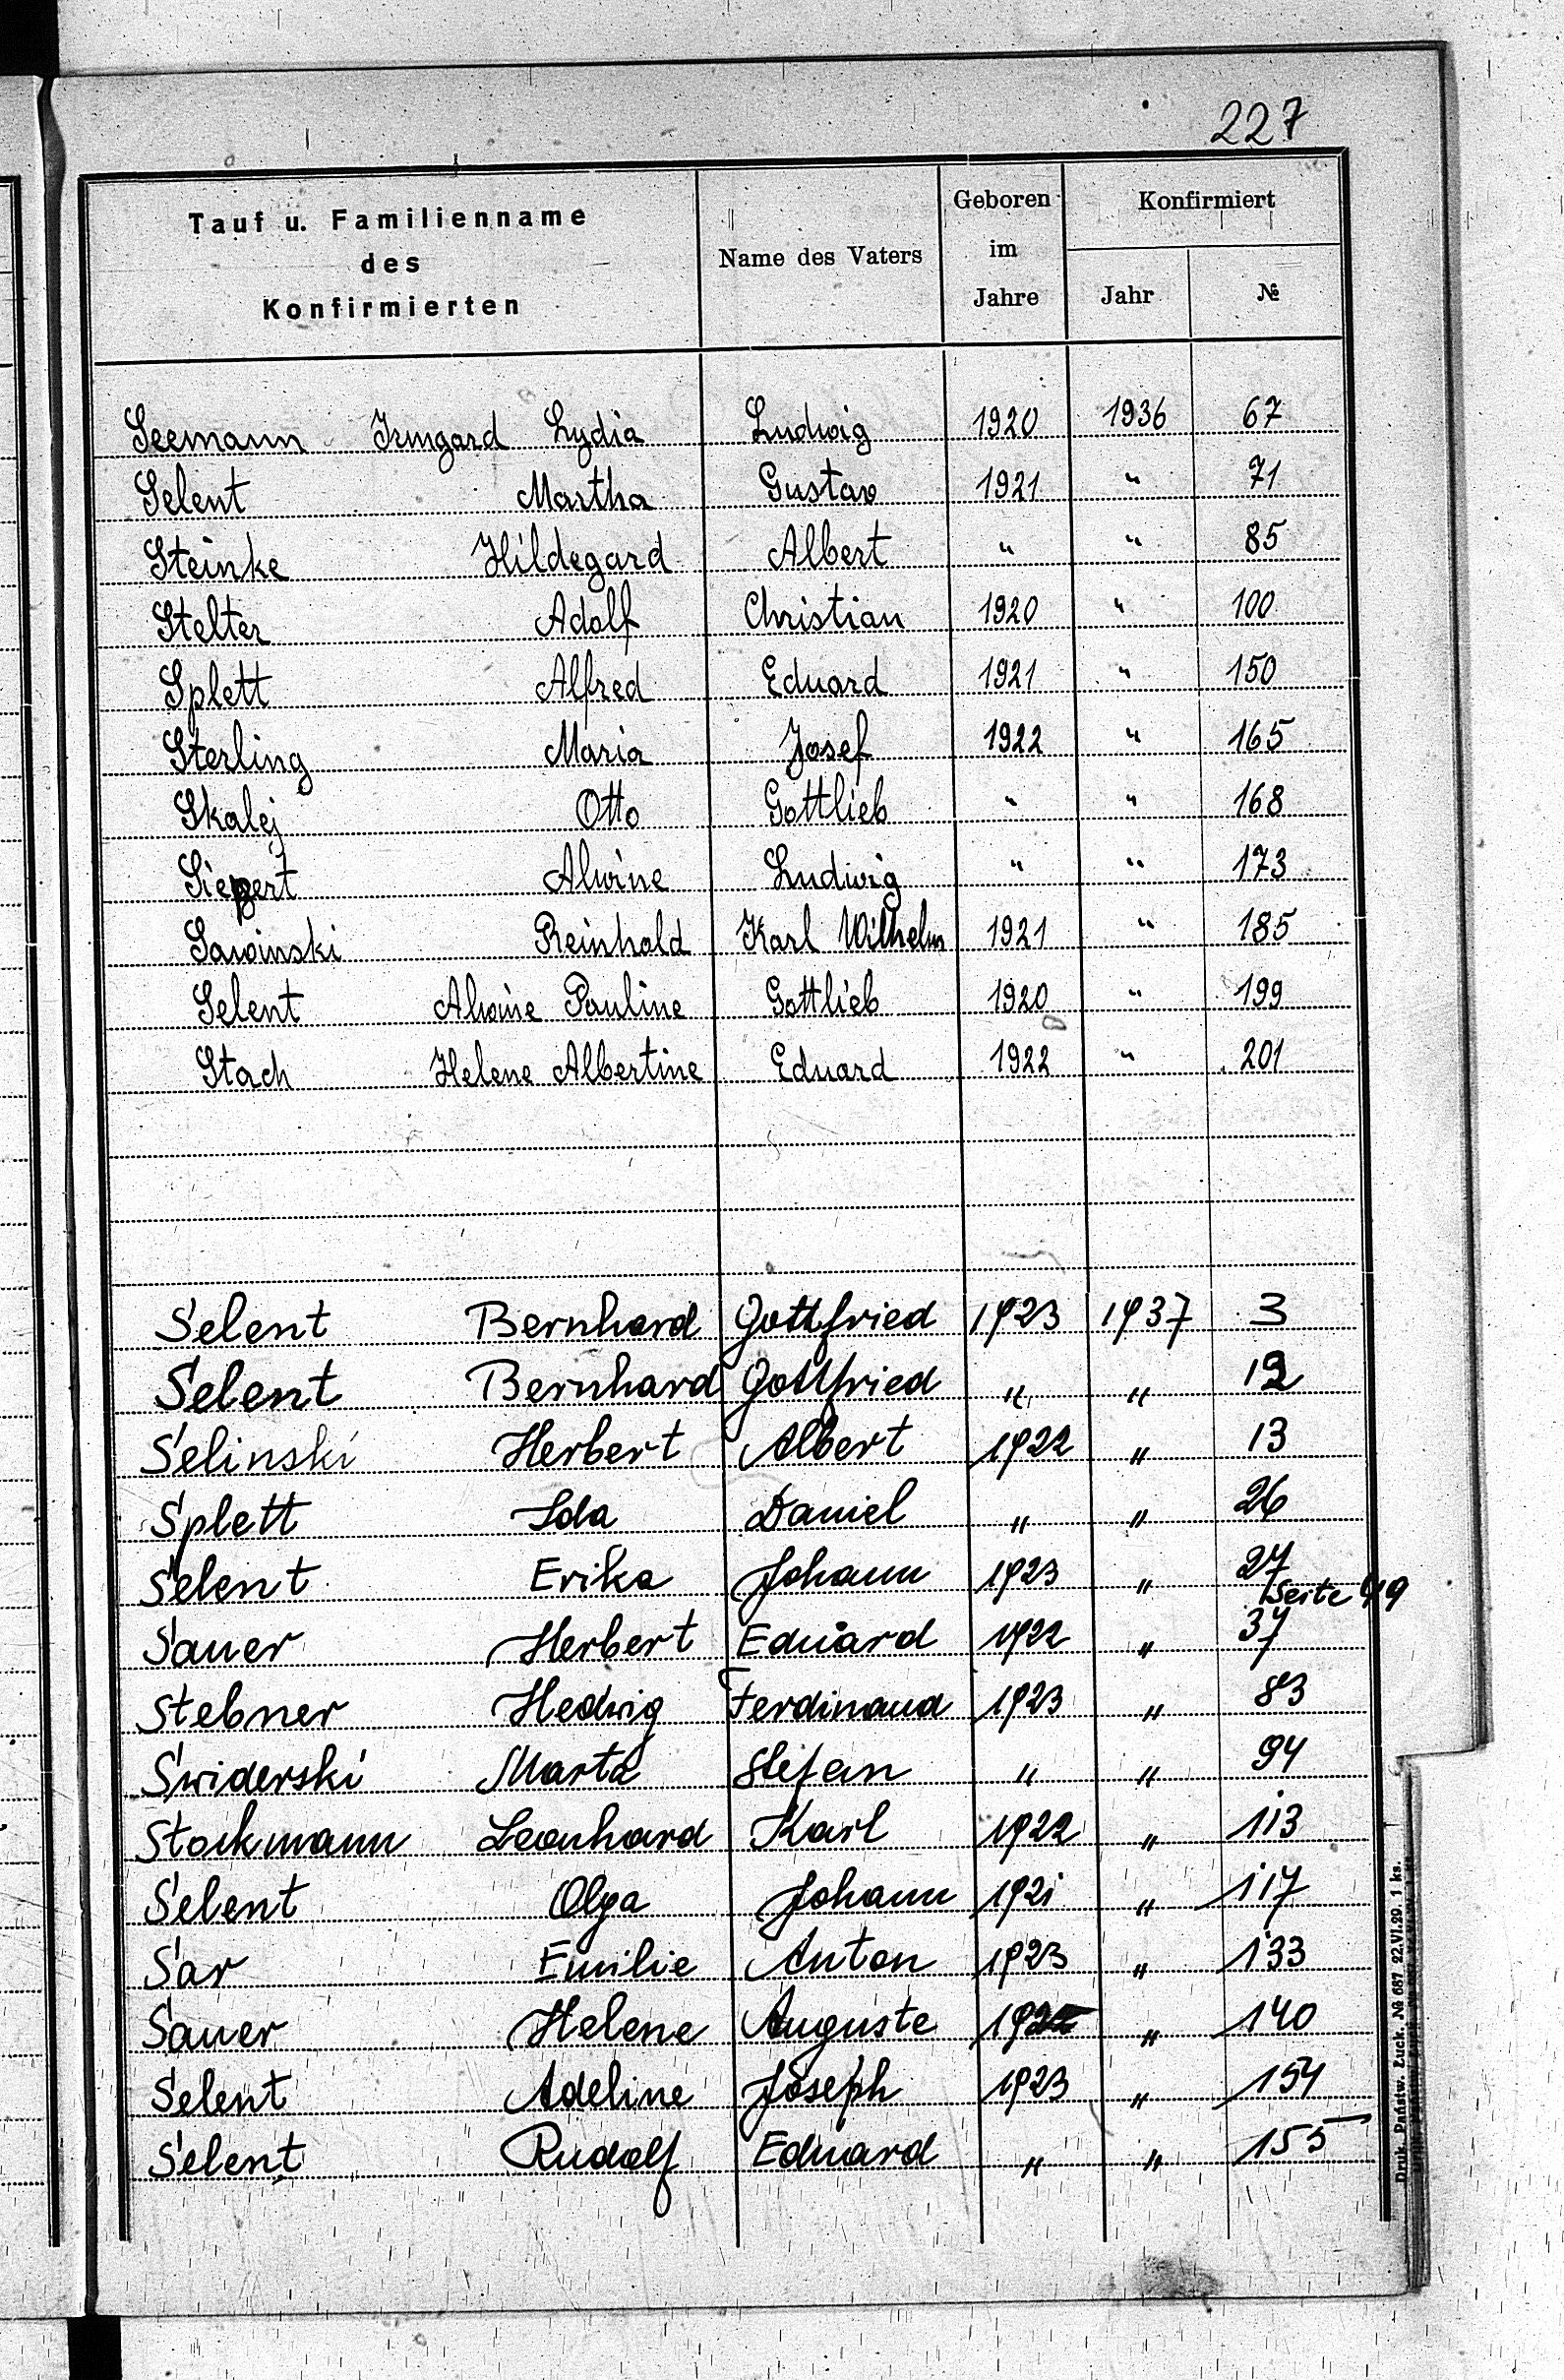 227
Tauf u. Familienname des Konfirmierten Name des Vaters Geboren im Jahre Konfirmiert Jahr №
Seemann Irmgard Lydia Ludwig 1920 1936 67
Selent Martha Gustav 1921 " 71
Steinke Hildegard Albert " " 85
Stelter Adolf Christian 1920 " 100
Splett Alfred Eduard 1921 " 150
Sterling Maria Josef 1922 " 165
Skalej Otto Gottlieb " " 168
Siepert Alwine Ludwig " " 173
Sawinski Reinhold Karl Wilhelm 1921 " 185
Selent Alwine Pauline Gottlieb 1920 " 199
Stach Helene Albertine Eduard 1922 " 201
Selent Bernhard Gottfried 1923 1937 3
Selent Bernhard Gottfried " " 12
Selinski Herbert Albert 1922 " 13
Splett Ida Daniel " " 26
Selent Erika Johann 1923 " 27
Seite 419
Sauer Herbert Eduard 1922 " 37
Stebner Hedwig Ferdinand 1923 " 83
Swiderski Marta Stefan " " 94
Stockmann Leonhard Karl 1922 " 113
Selent Olga Johann 1921 " 117
Sar Emilie Anton 1923 " 133
Sauer Helene Auguste " 140
Selent Adeline Joseph 1923 " 154
Selent Rudolf Eduard " " 155
Druk. Państw. Łuck. № 687 22.VI.29. 1 ks.